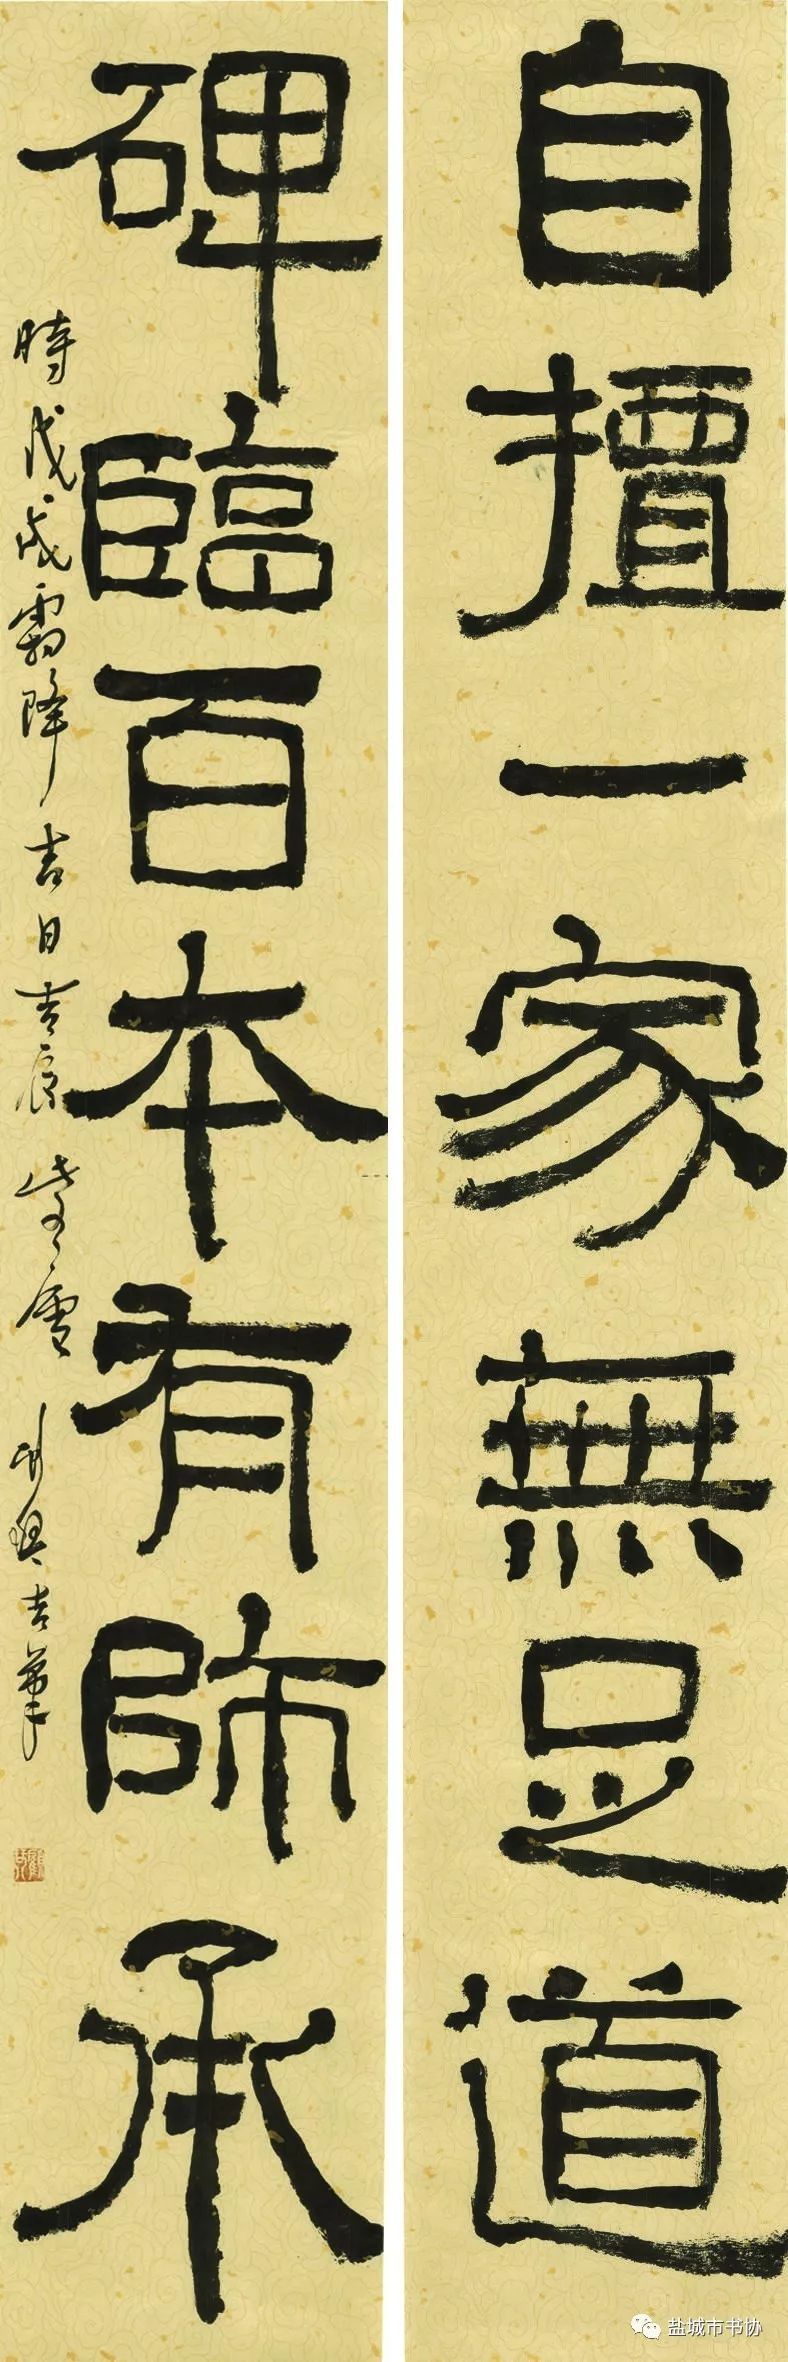 自擅一家無足道
碑臨百本有師承
時戊戌霜降吉日吉辰
吉筆
盐城市书协